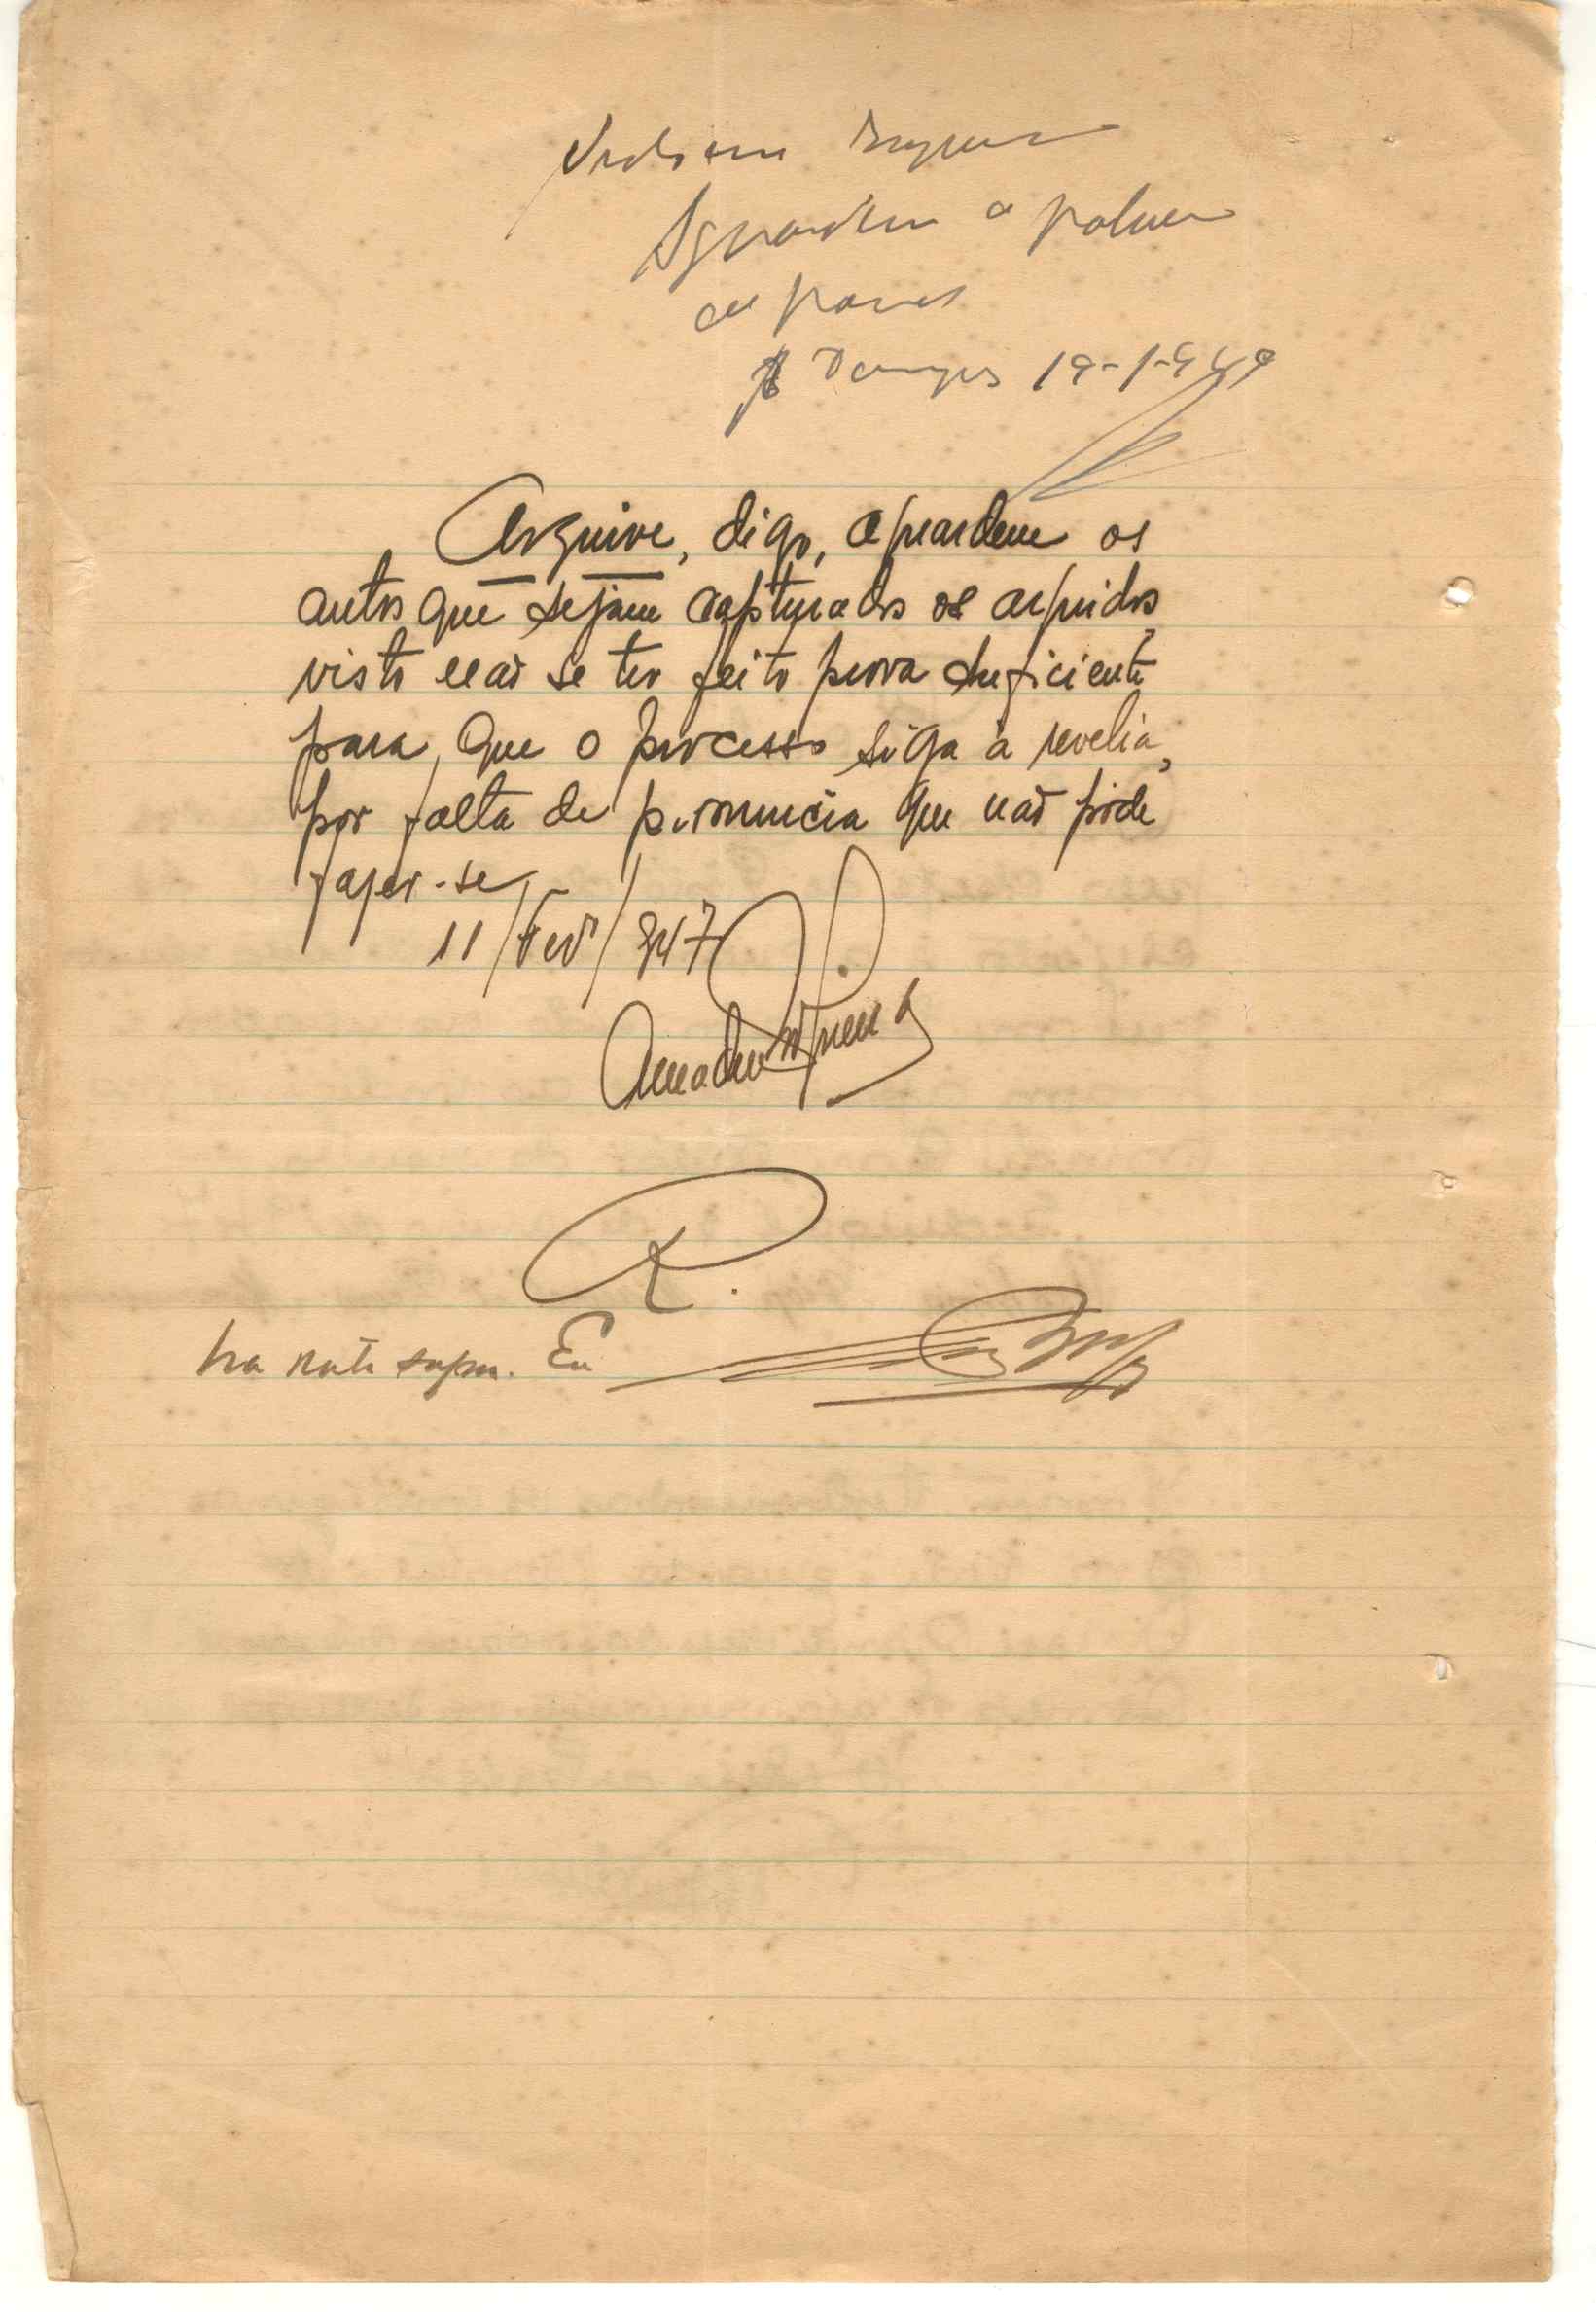 Aguardem a
19-1-949
Arquive, digo, aguardem os
autos que sejam capturados os arguidos,
visto não se ter feito prova suficiente
para que o processo siga à revelia,
por falta de pronuncia que não pode
fazer-se
11/Fev/947
Amadeu
R.
na nota supra. Eu